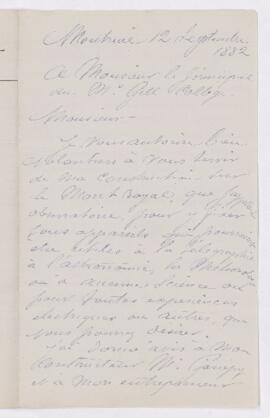 Montréal 12 Septembre
1882
A Monsieur le principal
du Mc Gill College
Monsieur
Je vous autorise bien
volontiers à vous servir
de ma construction sur
le Mont royal, que j'appelle
observatoire, pour y poser
tous appareils qui pourraient
être utiles à la télégraphie
à l'astronomie,
ou à aucune science ou
pour toutes expériences
électriques ou autres, que
vous pourrez désirer.
J'ai donné avis à mon
Constructeur Mr
et à mon entrepreneur